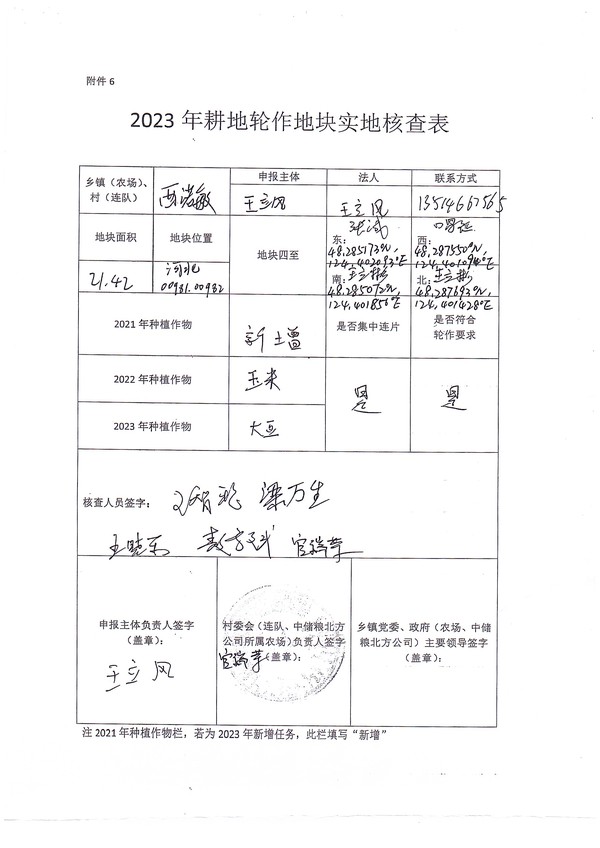 附件 6
2023 年耕地轮作地块实地核查表
乡镇（农场）、村（连队）
西诺敏
申报主体
法人
联系方式
王立风
王立风
13514667565
地块面积
地块位置
地块四至
东：
48.285173°N,
124.402092°E
西：
48.287550°N,
124.401094°E
21.42
河北
00981.00982
南：
48.285072°N,
124.401856°E
北：
48.287693°N,
124.401428°E
2021 年种植作物
新增
是否集中连片
是否符合轮作要求
2022 年种植作物
玉米
是
是
2023 年种植作物
大豆
核查人员签字：
梁万生
王晓东
官瑞苹
申报主体负责人签字
（盖章）：
王立风
村委会（连队、中储粮北方
公司所属农场）负责人签字
（盖章）：
官瑞苹
乡镇党委、政府（农场、中储
粮北方公司）主要领导签字
（盖章）：
注 2021 年种植作物栏，若为 2023 年新增任务，此栏填写“新增”